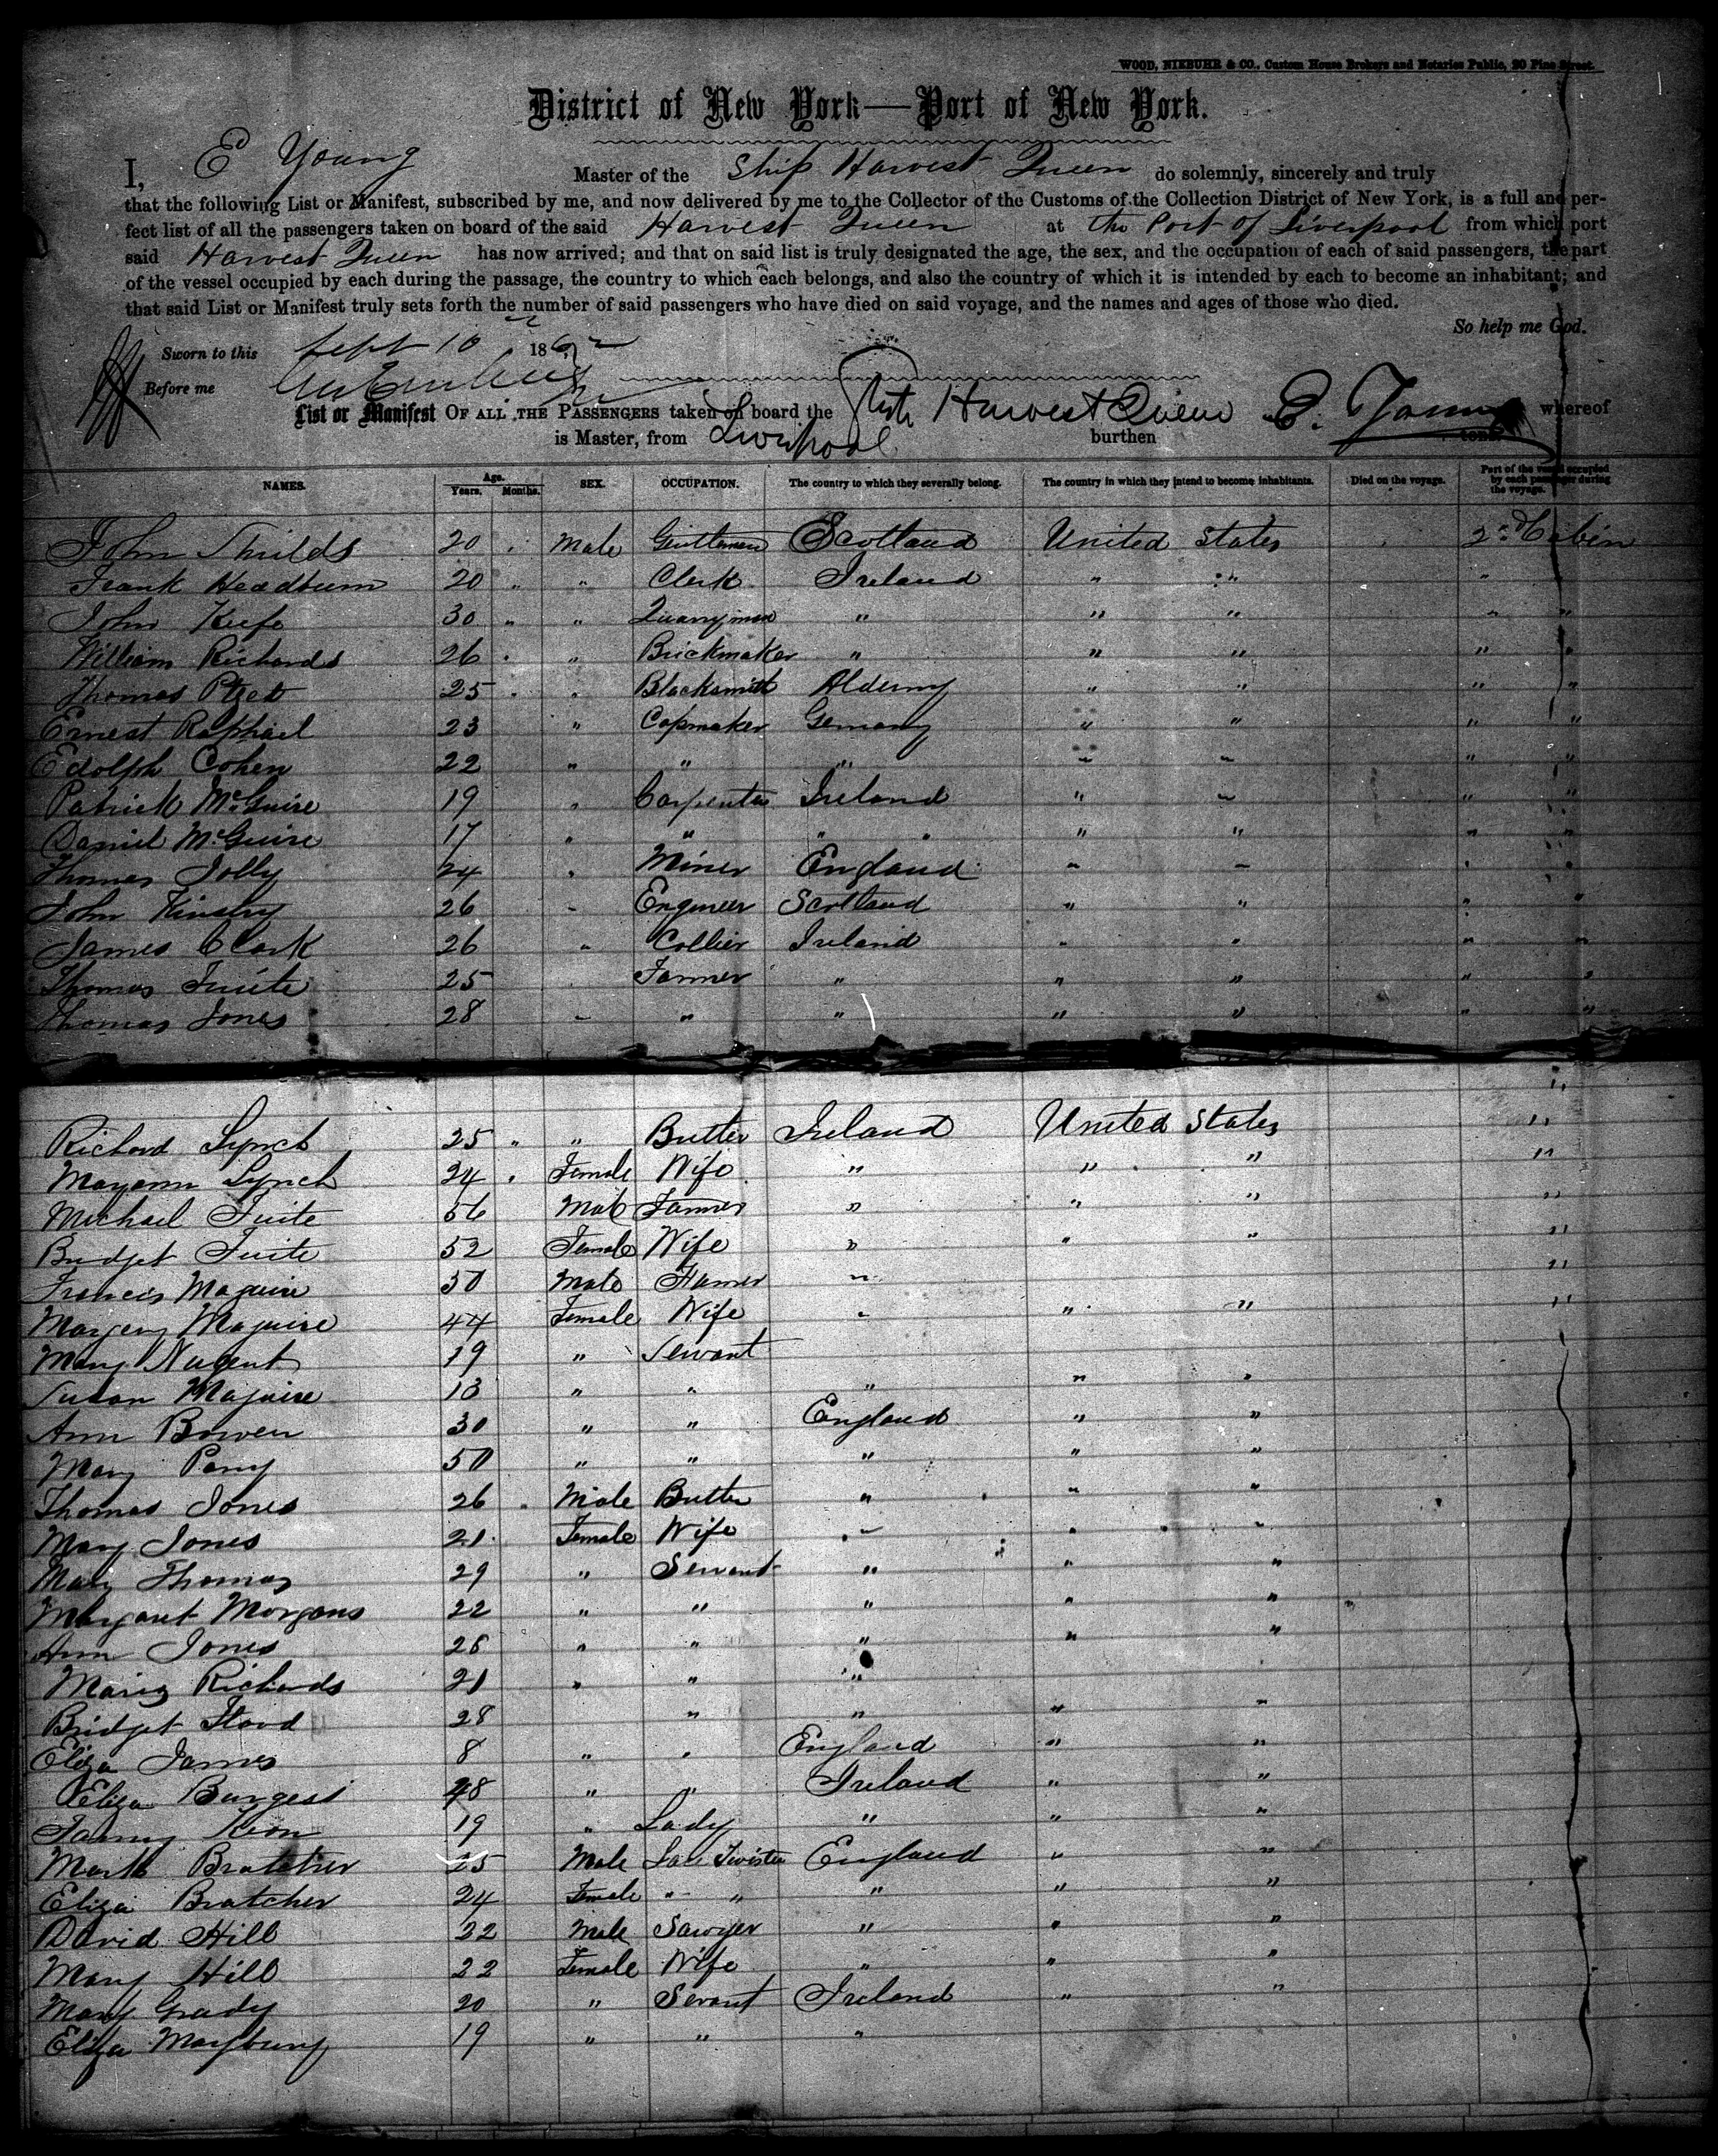 WOOD, NIEBUHR & CO., Custom House Brokers and Notaries Public, 20 Pine Street.
District of New York—Port of New York.
I, E Young Master of the Ship Harvest Queen do solemnly, sincerely and truly
that the following List or Manifest, subscribed by me, and now delivered by me to the Collector of the Customs of the Collection District of New York, is a full and per-
fect list of all the passengers taken on board of the said Harvest Queen at the Port of Liverpool from which port
said Harvest Queen has now arrived; and that on said list is truly designated the age, the sex, and the occupation of each of said passengers, the part
of the vessel occupied by each during the passage, the country to which each belongs, and also the country of which it is intended by each to become an inhabitant; and
that said List or Manifest truly sets forth the number of said passengers who have died on said voyage, and the names and ages of those who died.
So help me God.
Sworn to this Sept 10 1862
Before me
List or Manifest OF ALL THE PASSENGERS taken on board the Harvest Queen E. Young whereof
is Master, from Liverpool burthen tons.
NAMES. Age. Years. Months. SEX. OCCUPATION. The country to which they severally belong. The country in which they intend to become inhabitants. Died on the voyage. Part of the vessel occupied by each passenger during the voyage.
John Shilds 20 Male Gentleman Scotland United States 2nd Cabin
Frank Headburn 20 " " Clerk Ireland " " "
John Keefe 30 " " Quarryman " " " " "
William Richards 26 " Brickmaker " " " " "
Thomas 25 " Blacksmith Alderny " " " "
Ernest Raphael 23 " Capmaker Germany " " " "
Edolph Cohen 22 " " " " " " "
Patrick McGuire 19 " Carpenter Ireland " " " "
Daniel McGuire 17 " " " " " " " "
Thomas Jolly 24 " Miner England " " " "
John Kinslry 26 " Engineer Scotland " " " "
James Clark 26 " Collier Ireland " " " "
Thomas Tuite 25 Farmer " " " " "
Thomas Jones 28 " " " " " " "
Richard Lynch 25 " " Butler Ireland United States "
Maryann Lynch 24 Female Wife " " " "
Michael Tuite 56 Male Farmer " " " "
Bridget Tuite 52 Female Wife " " " "
Francis Maguire 50 Male Farmer " "
Margery Maguire 44 Female Wife " " " "
Mary Nugent 19 " Servant
Susan Maguire 13 " " " " "
Ann Bowen 30 " " England " "
Mary Parry 50 " " " " "
Thomas Jones 26 Male Butler " " "
Mary Jones 21 Female Wife " " "
Mary Thomas 29 " Servant " " "
Margaret Morgans 22 " " " " "
Ann Jones 26 " " " " "
Maria Richards 21 " " "
Bridget Flood 28 " " " "
Eliza James 8 " " England " "
Eliza Burgess 48 " " Ireland " "
Fanny Keon 19 " Lady " " "
Mark Bratcher 25 Male Lace Twister England " "
Eliza Bratcher 24 Female " " " " "
David Hill 22 Male Sawyer " " "
Mary Hill 22 Female Wife " " "
Mary Grady 20 " Servant Ireland " "
Eliza Maybury 19 " " "